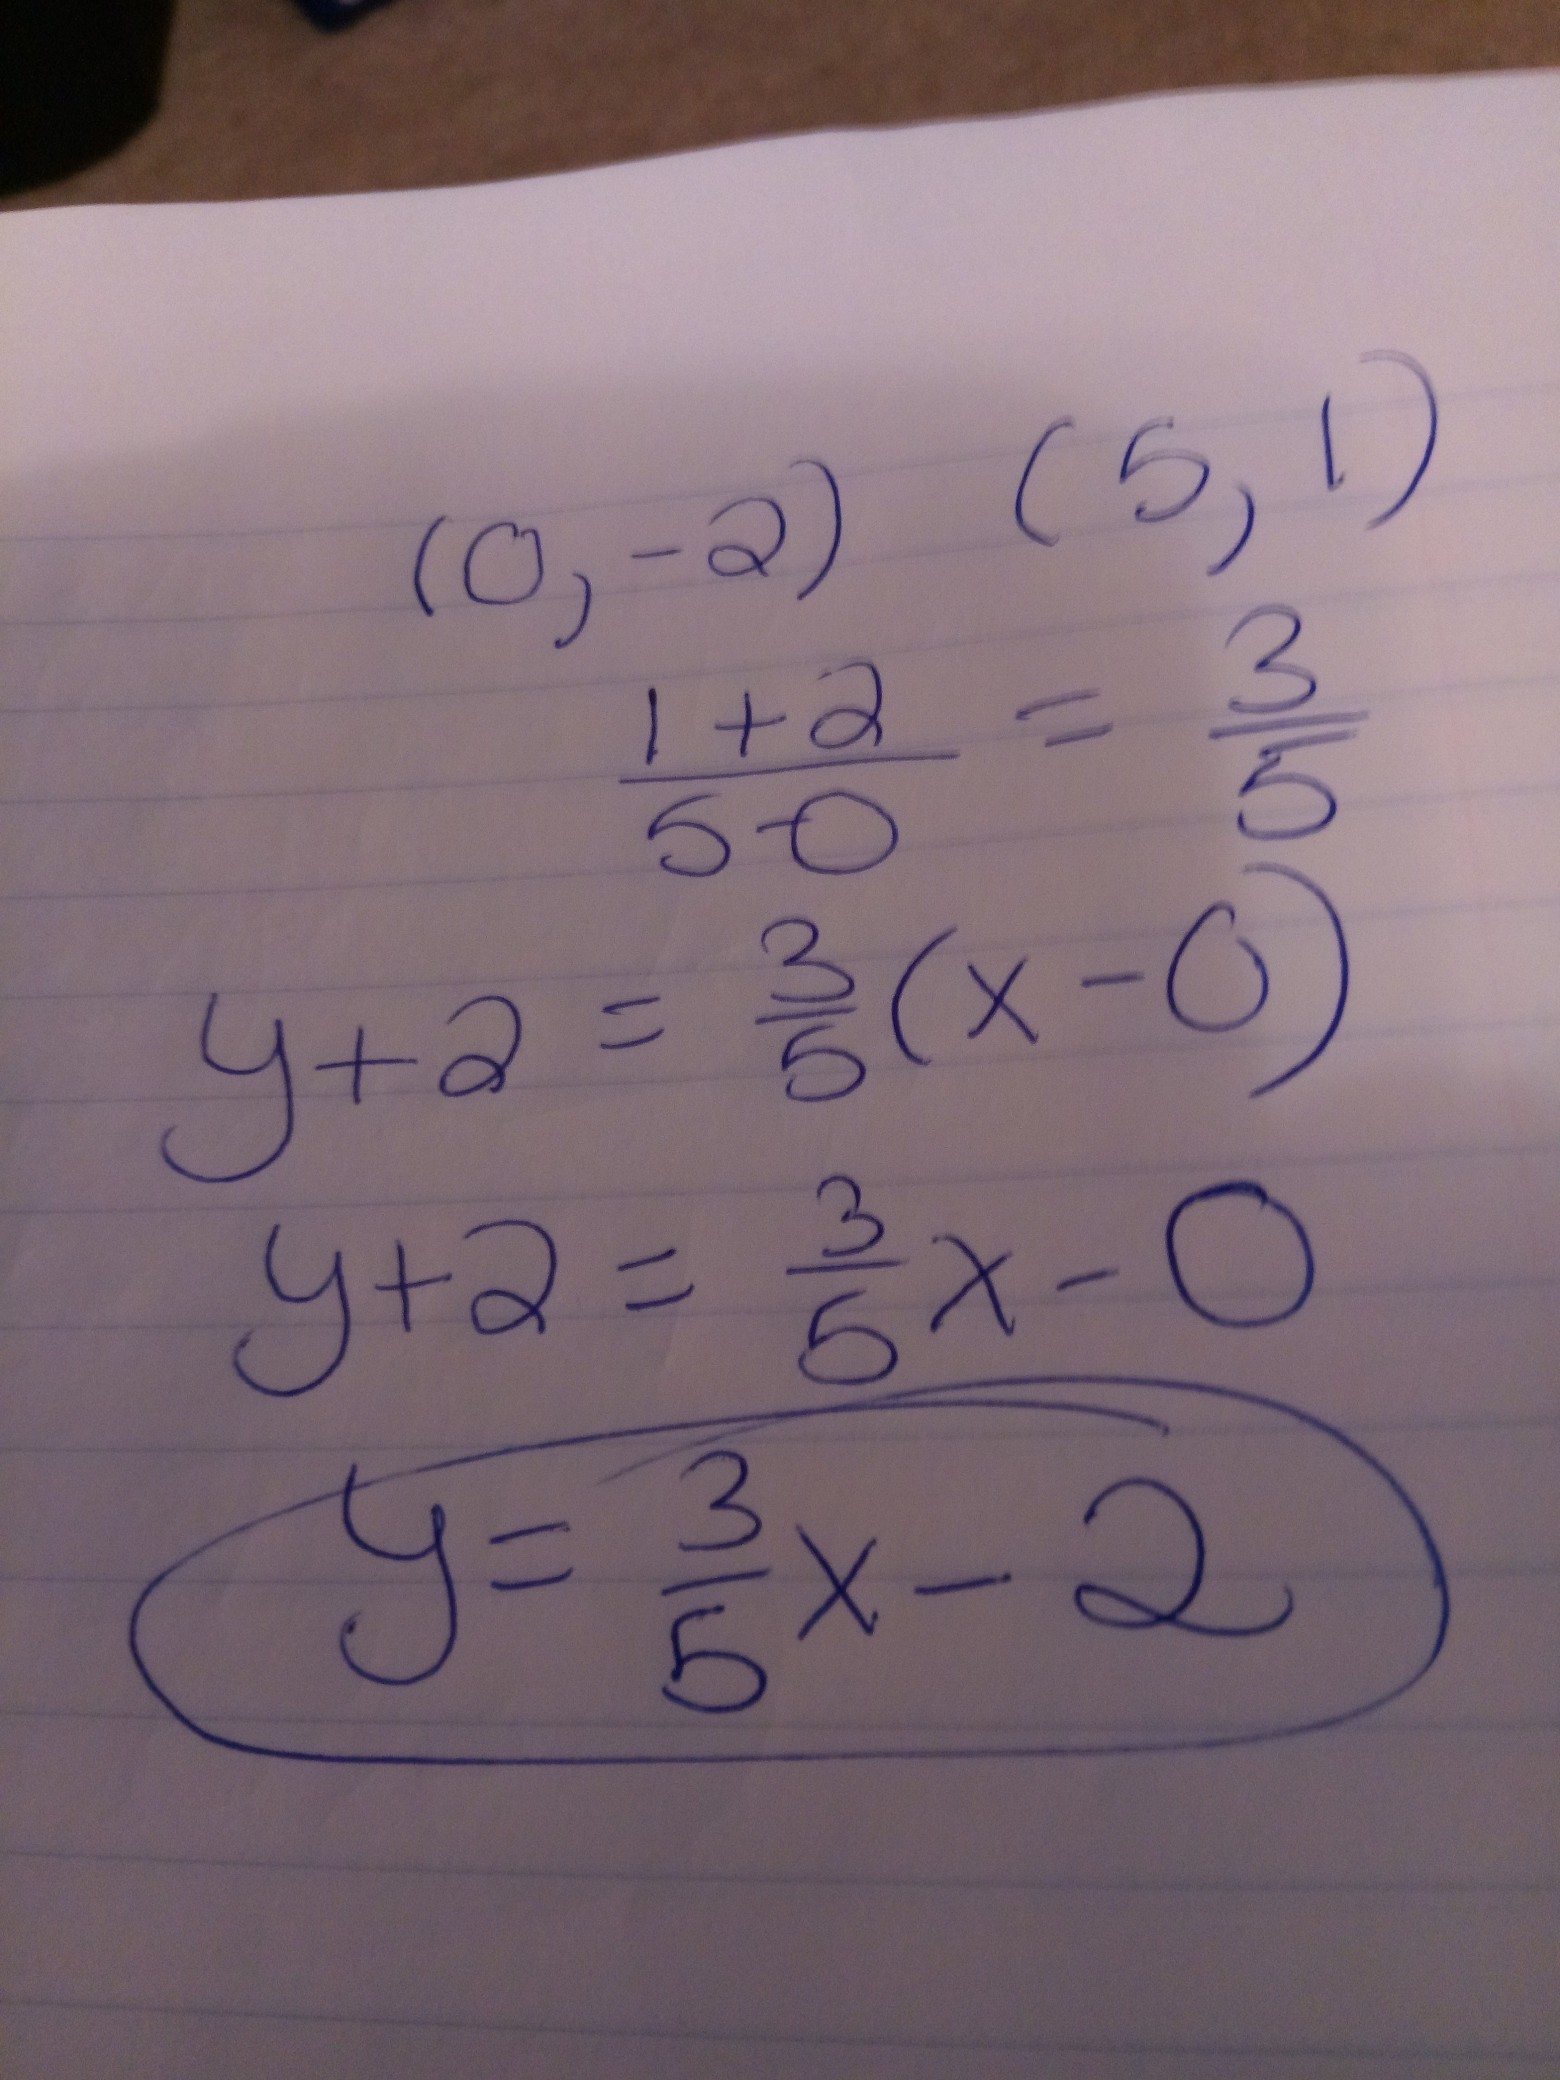 (0, -2) (5, 1)
1+2/5-0 = 3/5
y+2 = 3/5(x-0)
y+2 = 3/5x-0
y = 3/5x-2